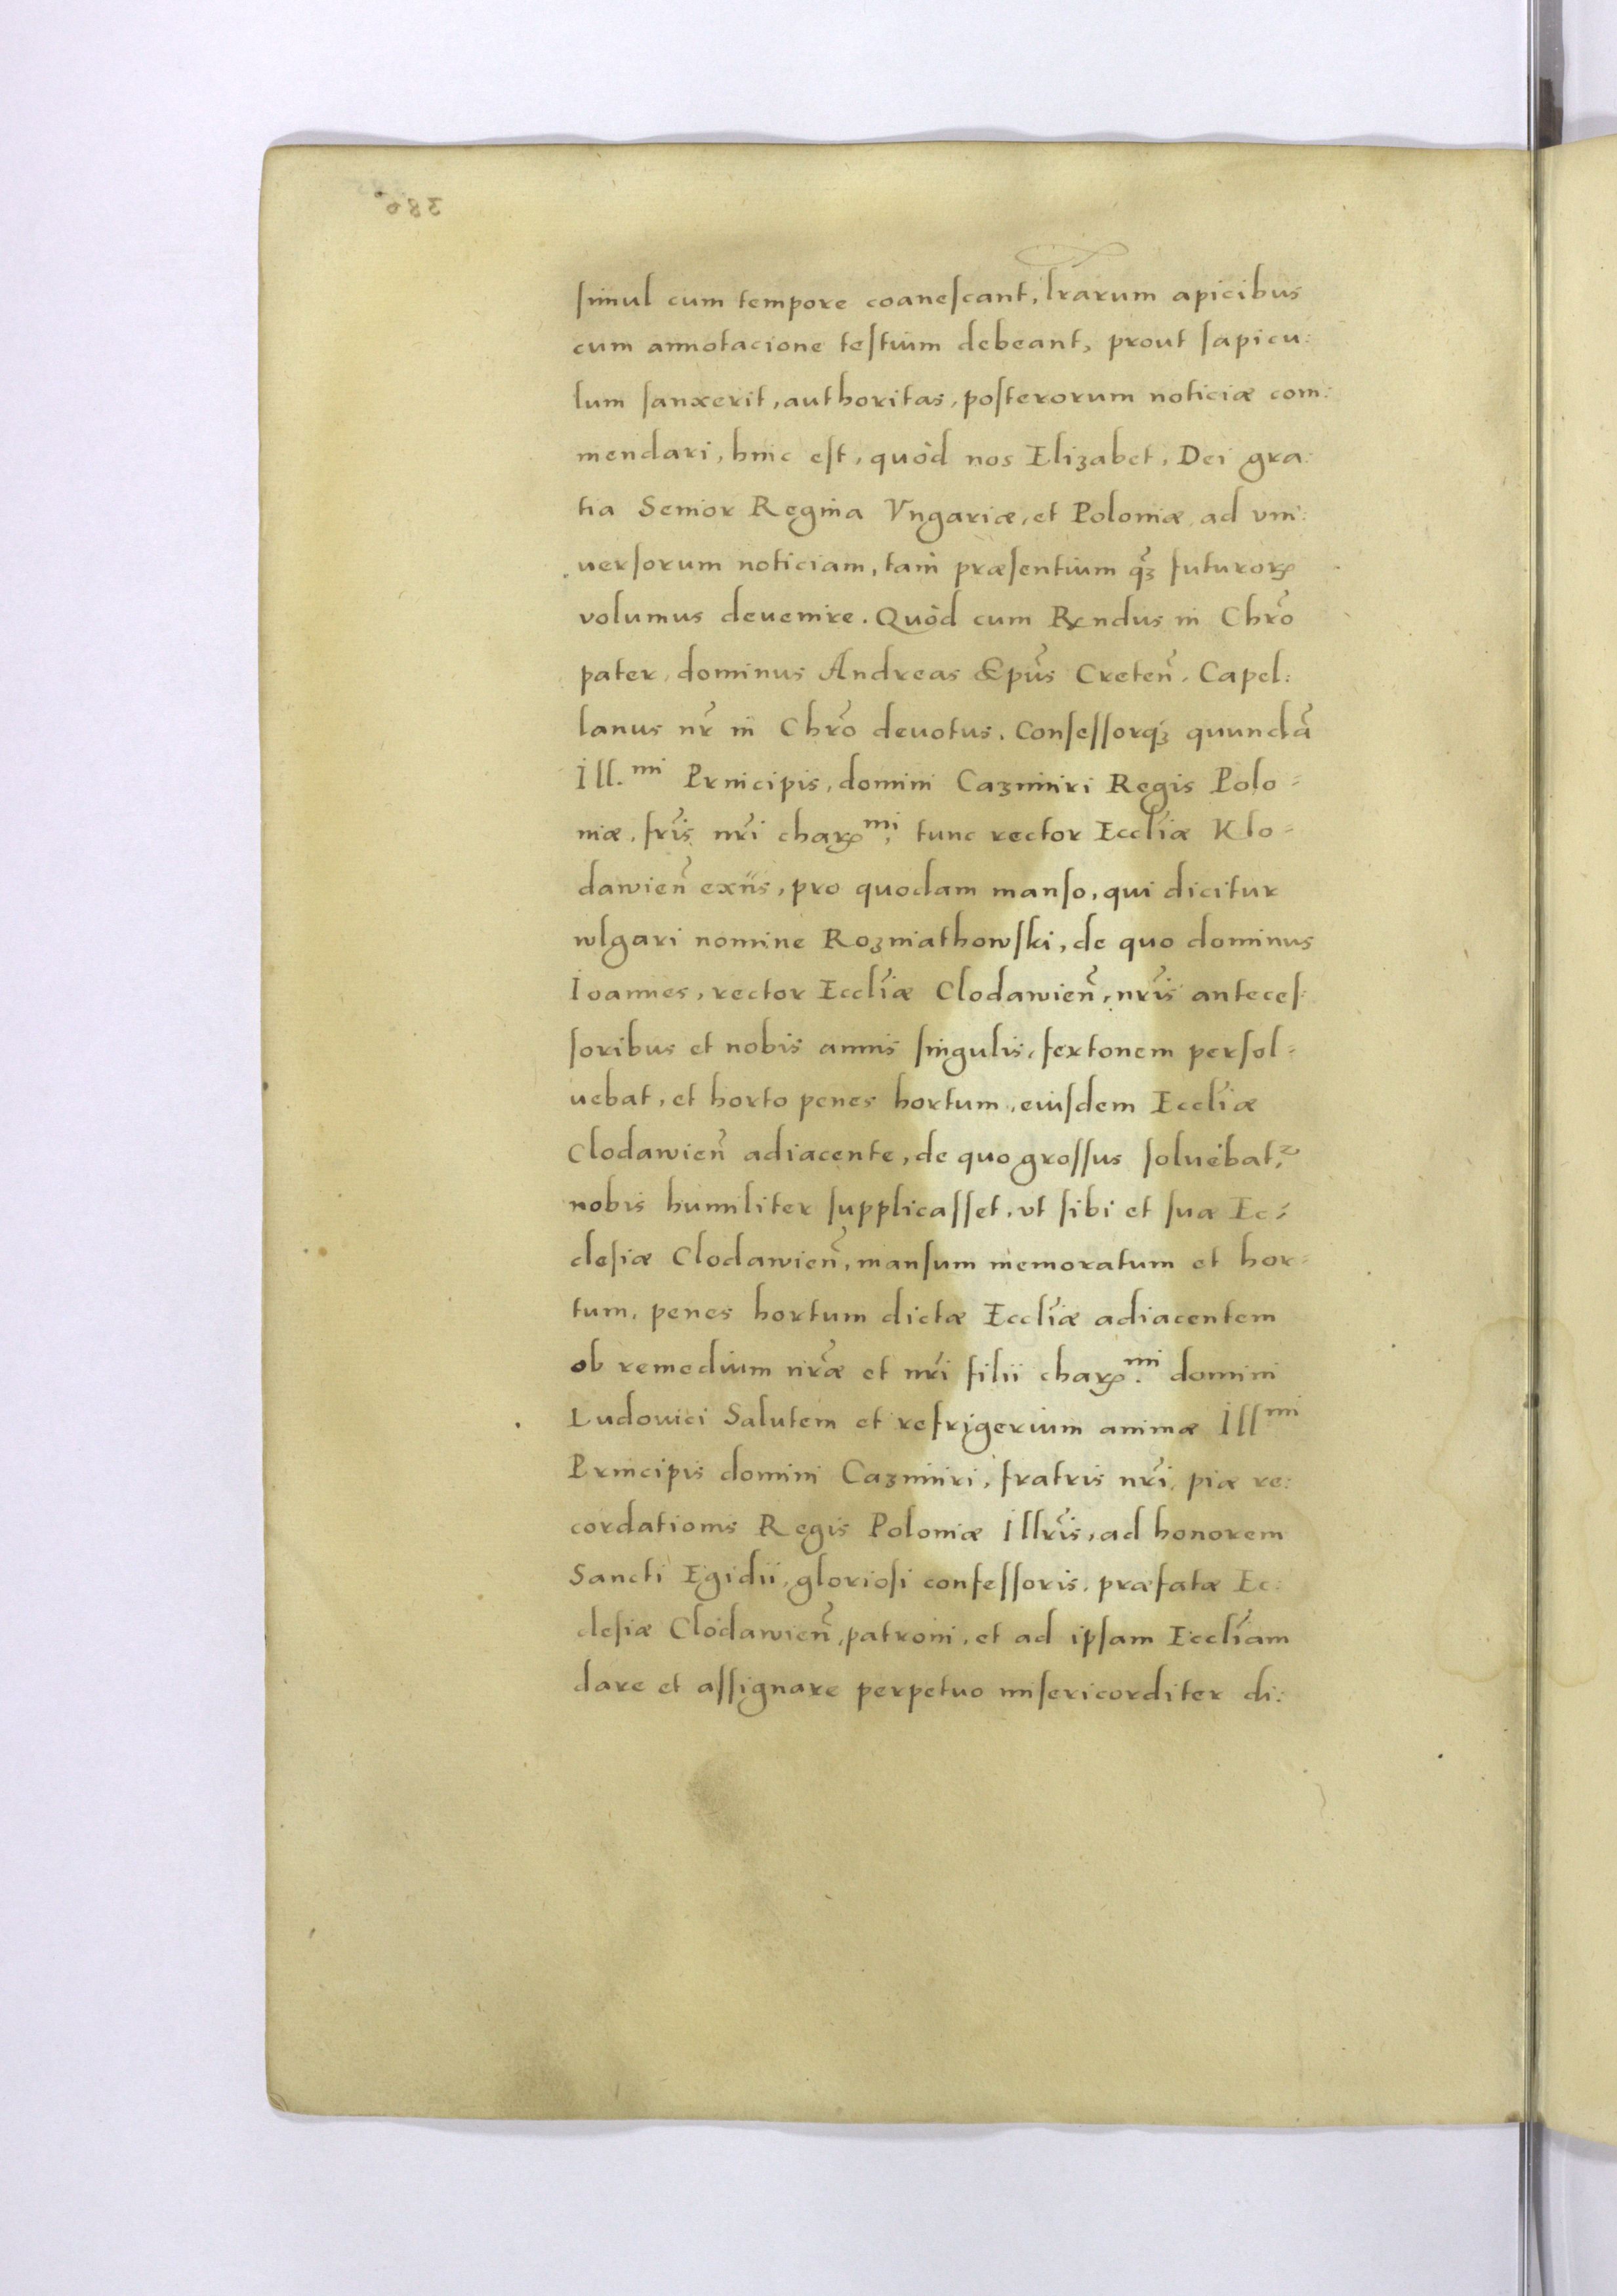 simul cum tempore coanescant, lr̃arum apicibus
cum annotacione testium debeant, prout sapicu:
lum sanxerit, authoritas, posterorum noticiæ com:
mendari, hinc est, quòd nos Elizabet, Dei gra:
tia Senior Regina Vngariæ, et Poloniæ, ad vni:
uersorum noticiam, tam præsentium qꝫ̃ futuroꝝ
volumus deuenire. Quòd cum Rẽndus in Chr̃o
pater, dominus Andreas Epũs Creteñ. Capel:
lanus nr̃ in Chr̃o deuotus. Confessorqꝫ quundã
Ill.mi Principis, domini Cazimiri Regis Polo=
niæ, fr̃is nr̃i chaꝝmi, tunc rector Eccl̃iæ Klo=
dawieñ exñs, pro quodam manso, qui dicitur
wlgari nomine Rozniathowski, de quo dominus
Ioannes, rector Eccl̃iæ Clodawieñ, nr̃is anteces:
soribus et nobis annis singulis, fertonem persol=
uebat, et horto penes hortum, eiusdem Eccl̃iæ
Clodawieñ adiacente, de quo grossus soluebat,²
nobis humiliter supplicasset, vt sibi et suæ Ec=
clesiæ Clodawieñ, mansum memoratum et hor=
tum, penes hortum dictæ Eccl̃iæ adiacentem
ob remedium nr̃æ et nr̃i filii chaꝝ.mi domini
Ludouici Salutem et refrigerium animæ Illmi
Principis domini Cazimiri, fratris nr̃i, piæ re:
cordationis Regis Poloniæ Illr̃is, ad honorem
Sancti Egidii, gloriosi confessoris, præfatæ Ec:
clesiæ Clodawieñ, patroni, et ad ipsam Eccl̃iam
dare et assignare perpetuo misericorditer di: